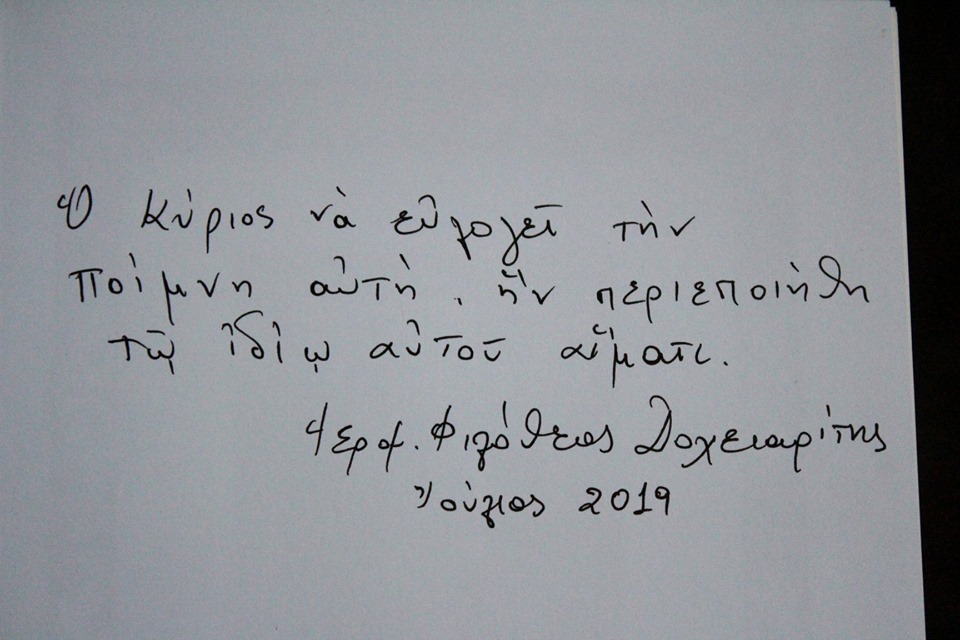 Ὁ Κύριος νὰ εὐλογεῖ τὴν
ποίμνη αὐτή, ἥν περιεποιήθη
τῷ ἰδίῳ αὐτοῦ αἵματι.
Ἱερομ. Φιλόθεος Δοχειαρίτης
Ἰούλιος 2019